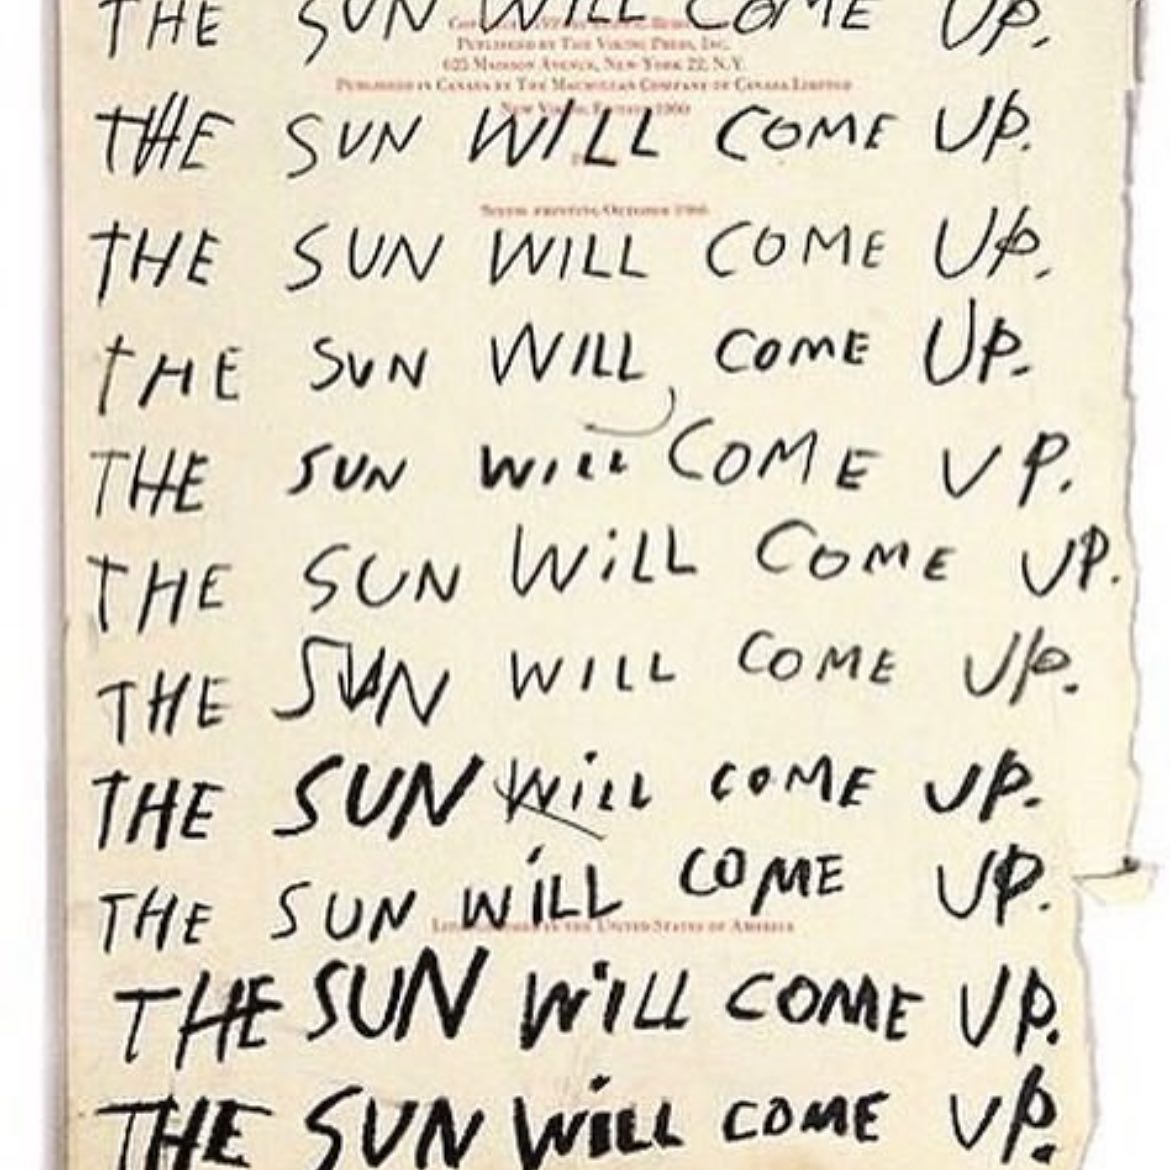 THE SUN WILL COME UP.
PUBLISHED BY THE VIKING PRESS, INC.
625 MADISON AVENUE, NEW YORK 22, N.Y.
PUBLISHED IN CANADA BY THE MACMILLAN COMPANY OF CANADA LIMITED
THE SUN WILL COME UP.
PRINTING OCTOBER 1966
THE SUN WILL COME UP.
THE SUN WILL COME UP.
THE SUN WiLL COME UP.
THE SUN WiLL COME UP.
THE SUN WILL COME UP.
THE SUN WiLL COME UP.
THE SUN WiLL COME UP.
IN THE UNITED STATES OF AMERICA
THE SUN WiLL COME UP.
THE SUN WiLL COME UP.